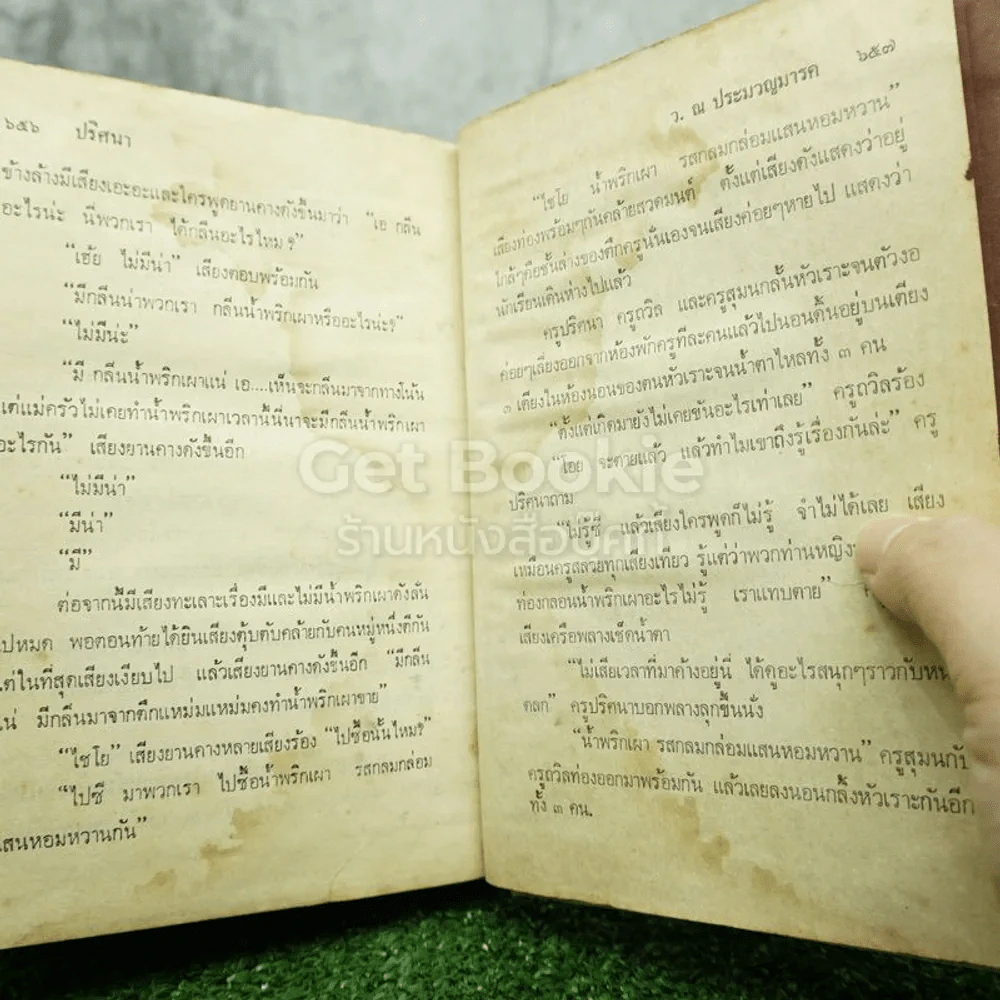 ๖๕๖ ปริศนา
ข้างล้างมีเสียงเอะอะและใครพูดยานคางดังขึ้นมาว่า “เอ กลิ่น
อะไรน่ะ นี่พวกเรา ได้กลิ่นอะไรไหม?”
“เฮ้ย ไม่มีน่า” เสียงตอบพร้อมกัน
“มีกลิ่นน่าพวกเรา กลิ่นน้ำพริกเผาหรืออะไรน่ะ?”
“ไม่มีน่ะ”
“มี กลิ่นน้ำพริกเผาแน่ เอ....เห็นจะกลิ่นมาจากทางโน้น
แต่แม่ครัวไม่เคยทำน้ำพริกเผาเวลานี้นี่นาจะมีกลิ่นน้ำพริกเผา
อะไรกัน” เสียงยานคางดังขึ้นอีก
“ไม่มีน่า”
“มีน่า”
“มี”
ต่อจากนี้มีเสียงทะเลาะเรื่องมีและไม่มีน้ำพริกเผาดังลั่น
ไปหมด พอตอนท้ายได้ยินเสียงตุ้บตับคล้ายกับคนหมู่หนึ่งตีกัน
แต่ในที่สุดเสียงเงียบไป แล้วเสียงยานคางดังขึ้นอีก “มีกลิ่น
แน่ มีกลิ่นมาจากตึกแหม่มแหม่มคงทำน้ำพริกเผาขาย”
“ไชโย” เสียงยานคางหลายเสียงร้อง “ไปซื้อนั้นไหม?”
“ไปซี มาพวกเรา ไปซื้อน้ำพริกเผา รสกลมกล่อม
แสนหอมหวานกัน”
ว. ณ ประมวญมารค ๖๕๗
“ไชโย น้ำพริกเผา รสกลมกล่อมแสนหอมหวาน”
เสียงท่องพร้อมๆกันคล้ายสวดมนต์ ตั้งแต่เสียงดังแสดงว่าอยู่
ใกล้ๆคือชั้นล่างของตึกครูนั่นเองจนเสียงค่อยๆหายไป แสดงว่า
นักเรียนเดินห่างไปแล้ว
ครูปริศนา ครูถวิล และครูสุมนกลั้นหัวเราะจนตัวงอ
ค่อยๆเลี่ยงออกจากห้องพักครูทีละคนแล้วไปนอนดิ้นอยู่บนเตียง
๓ เตียงในห้องนอนของตนหัวเราะจนน้ำตาไหลทั้ง ๓ คน
“ตั้งแต่เกิดมายังไม่เคยขันอะไรเท่าเลย” ครูถวิลร้อง
“โอย จะตายแล้ว แล้วทำไมเขาถึงรู้เรื่องกันล่ะ” ครู
ปริศนาถาม
“ไม่รู้ซี แล้วเสียงใครพูดก็ไม่รู้ จำไม่ได้เลย เสียง
เหมือนครูสลวยทุกเสียงเทียว รู้แต่ว่าพวกท่านหญิง
ท่องกลอนน้ำพริกเผาอะไรไม่รู้ เราแทบตาย”
เสียงเครือพลางเช็ดน้ำตา
“ไม่เสียเวลาที่มาค้างอยู่นี่ ได้ดูอะไรสนุกๆราวกับหนัง
ตลก” ครูปริศนาบอกพลางลุกขึ้นนั่ง
“น้ำพริกเผา รสกลมกล่อมแสนหอมหวาน” ครูสุมนกับ
ครูถวิลท่องออกมาพร้อมกัน แล้วเลยลงนอนกลิ้งหัวเราะกันอีก
ทั้ง ๓ คน.
Get Bookie
ร้านหนังสือบุ๊คกี้